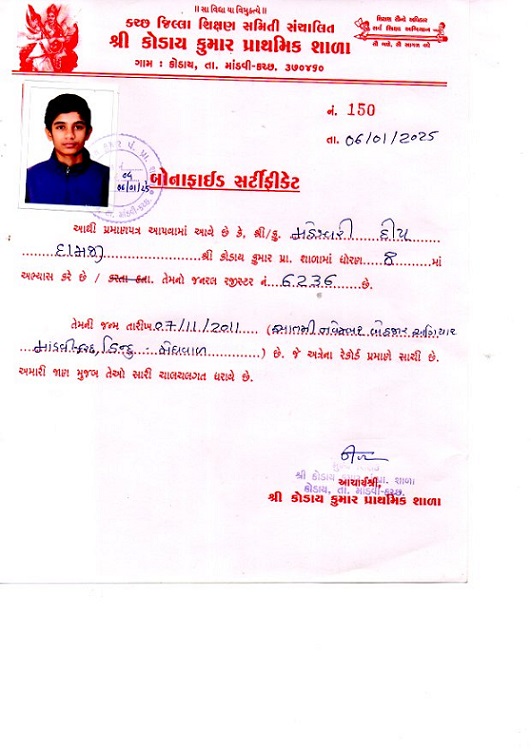 ॥ सा विद्या या विमुक्तये ॥
કચ્છ જિલ્લા શિક્ષણ સમિતી સંચાલિત
શ્રી કોડાય કુમાર પ્રાથમિક શાળા
ગામ : કોડાય, તા. માંડવી-કચ્છ. ૩૭૦૪૬૦
સર્વ શિક્ષા અભિયાન
નં. 150
તા. 06/01/2025
06/01/25
બોનાફાઈડ સર્ટીફીકેટ
આથી પ્રમાણપત્ર આપવામાં આવે છે કે, શ્રી/કુ. મહેશ્વરી દીપ
દામજી શ્રી કોડાય કુમાર પ્રા. શાળામાં ધોરણ 8 માં
અભ્યાસ કરે છે / કરતા હતા. તેમનો જનરલ રજીસ્ટર નં. 6236 છે.
તેમની જન્મ તારીખ 07/11/2011 (સાતમી નવેમ્બર બેહજાર અગિયાર
માંડવી-કચ્છ, હિન્દુ - મેઘવાળ ) છે. જે અત્રેના રેકોર્ડ પ્રમાણે સાચી છે.
અમારી જાણ મુજબ તેઓ સારી ચાલચલગત ધરાવે છે.
શ્રી કોડાય કુમાર પ્રા. શાળા
આચાર્યશ્રી,
કોડાય, તા. માંડવી-કચ્છ.
શ્રી કોડાય કુમાર પ્રાથમિક શાળા